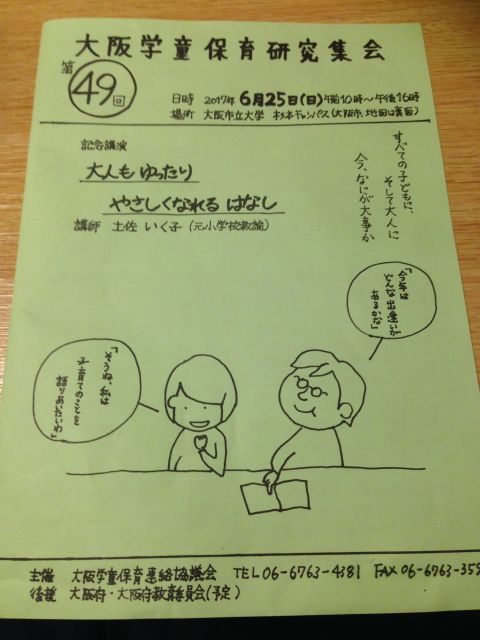 大阪学童保育研究集会
第49回
日時 2017年 6月25日(日)午前10時〜午後16時
場所 大阪市立大学 杉本キャンパス(大阪市、地図は裏面)
記念講演
大人も ゆったり
やさしくなれる はなし
講師 土佐 いく子(元小学校教諭)
すべての子どもに、
そして大人に
今、なにが大事か
「今年は
どんな出逢いが
あるかな」
「そうね、私は
子育てのことを
語りあいたいわ」
主催 大阪学童保育連絡協議会 TEL 06-6763-4381 FAX 06-6763-359
後援 大阪府・大阪府教育委員会(予定)